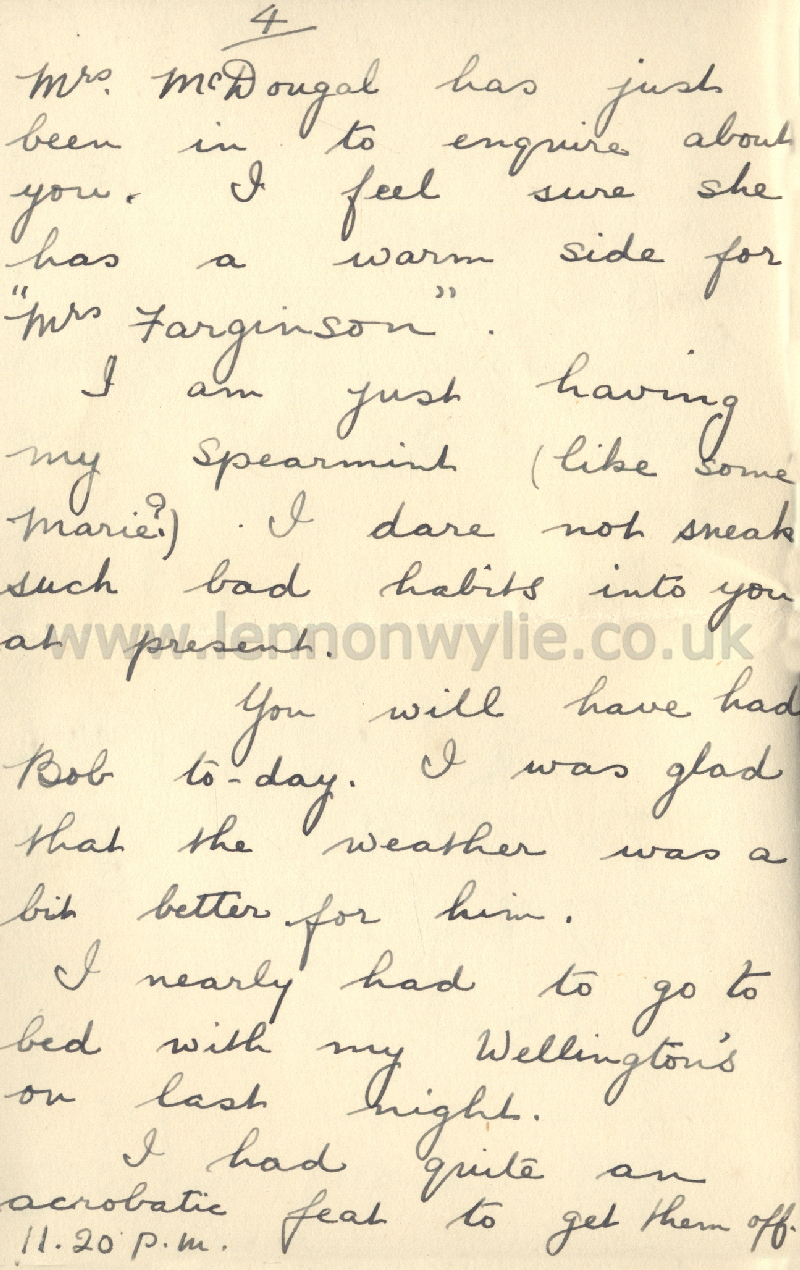 4
Mrs. McDougal has just
been in to enquire about
you. I feel sure she
has a warm side for
"Mrs Farginson".
I am just having
my spearmint (like some
Marie?). I dare not sneak
such bad habits into you
at present.
www.lennonwylie.co.uk
You will have had
Bob to-day. I was glad
that the weather was a
bit better for him.
I nearly had to go to
bed with my Wellington's
on last night.
I had quite an
acrobatic feat to get them off.
11.20 p.m.